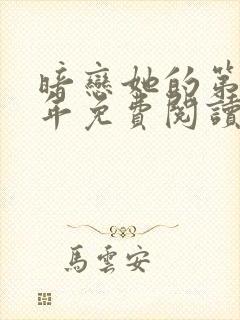 暗戀她的第
年免費閱讀
馬雲安